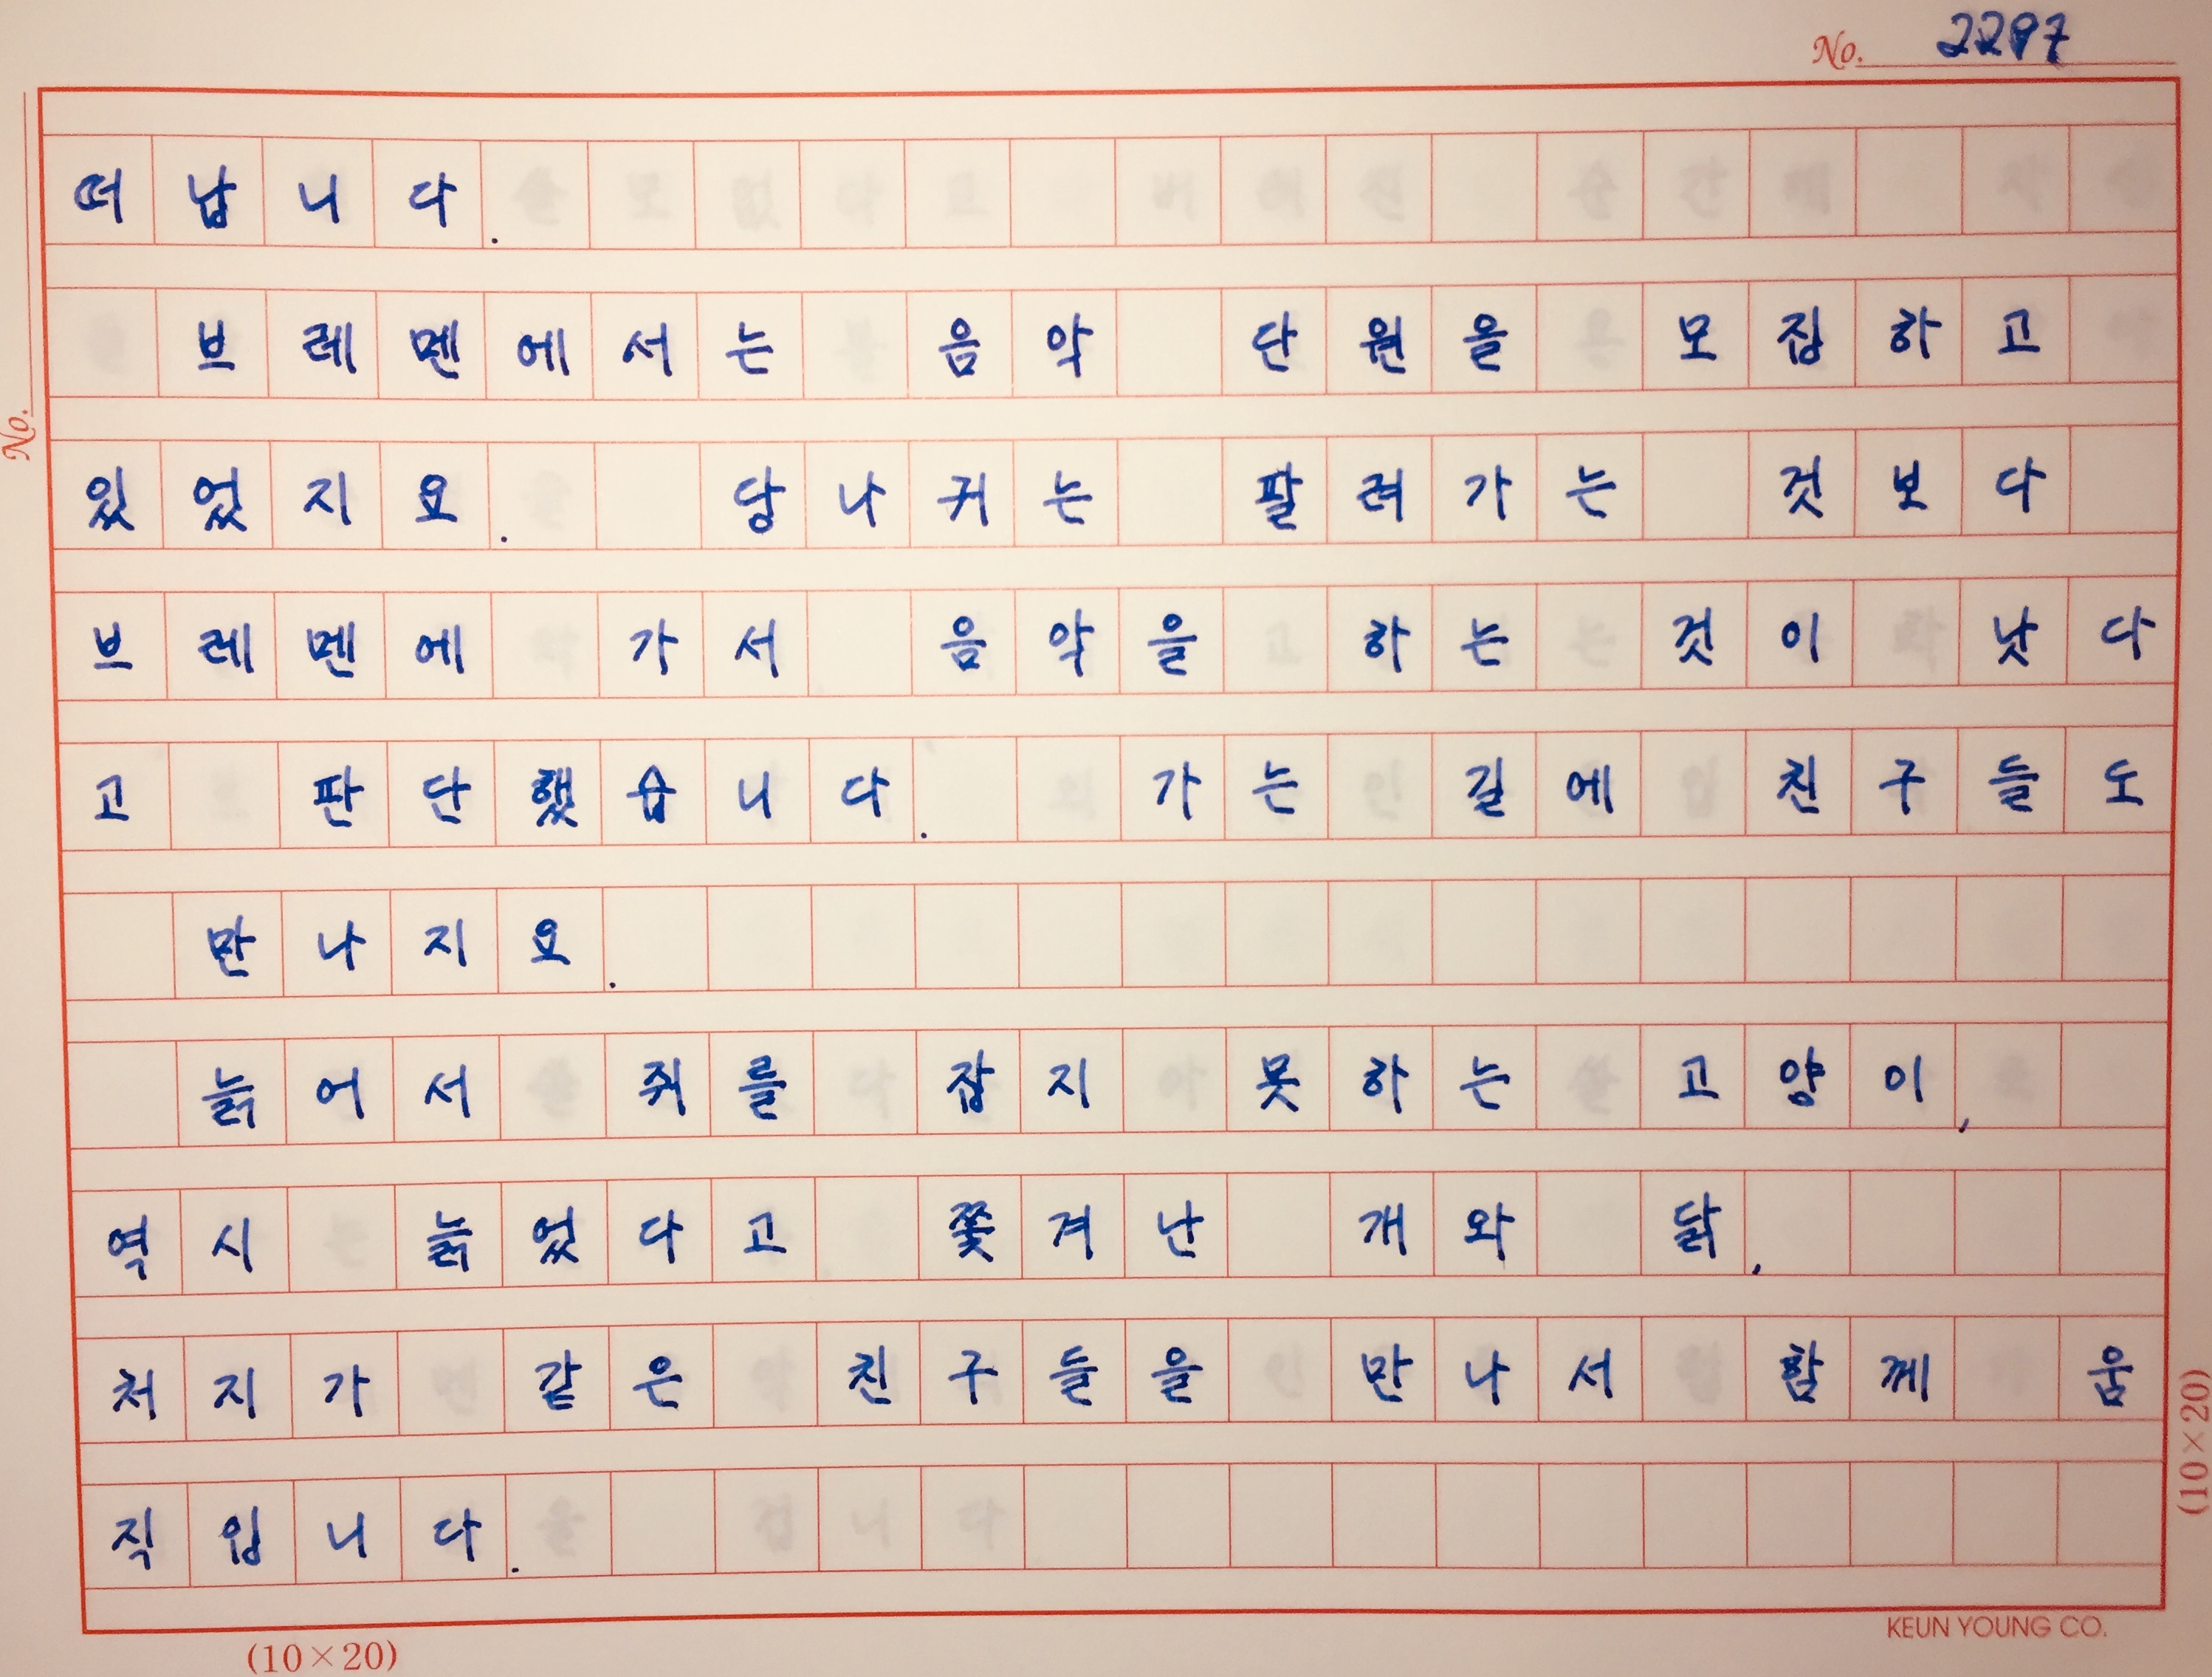 No. 2297
떠납니다.
브레멘에서는 음악 단원을 모집하고
있었지요. 당나귀는 팔려가는 것보다
브레멘에 가서 음악을 하는 것이 낫다
고 판단했습니다. 가는 길에 친구들도
만나지요.
늙어서 쥐를 잡지 못하는 고양이,
역시 늙었다고 쫓겨난 개와 닭,
처지가 같은 친구들을 만나서 함께 움
직입니다.
No.
(10×20)
KEUN YOUNG CO.
(10×20)